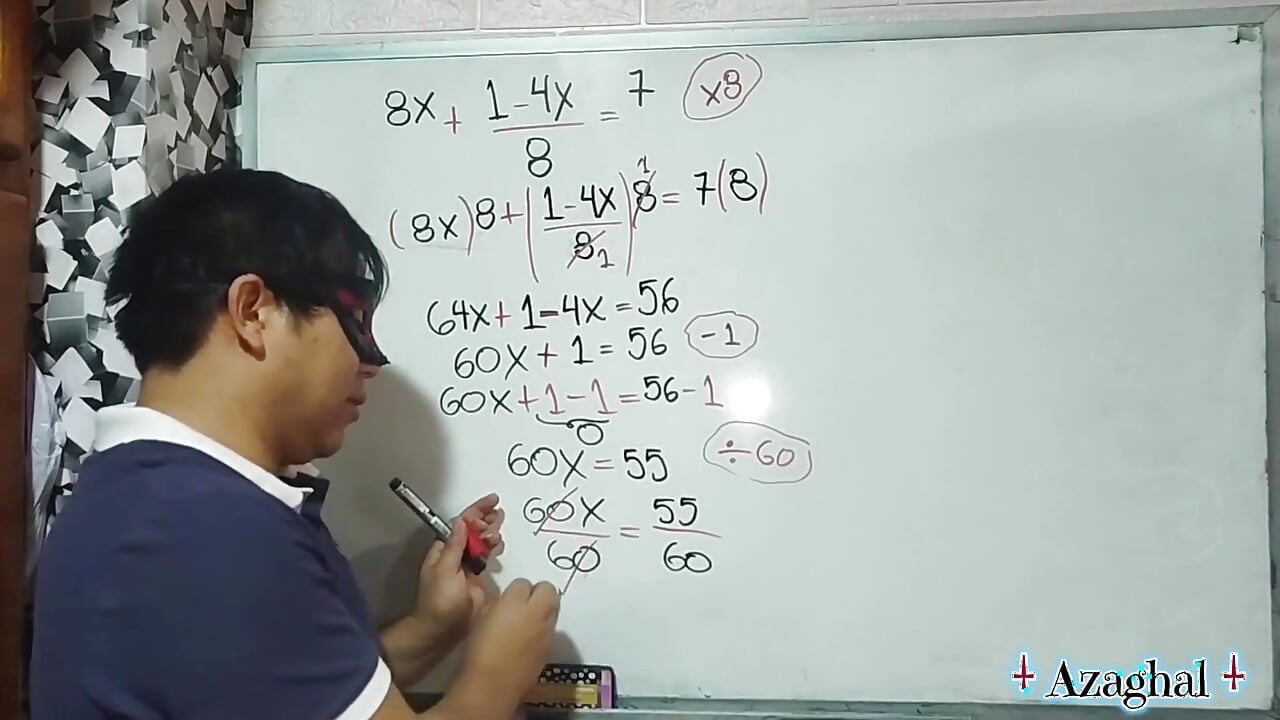 8x + 1-4x/8 = 7 ×8
(8x)8+(1-4x/8 1)8 1 = 7(8)
64x+1-4x=56
60x+1=56 -1
60x+1-1=56-1
0
60x=55 ÷60
60x/60 = 55/60
Azaghal